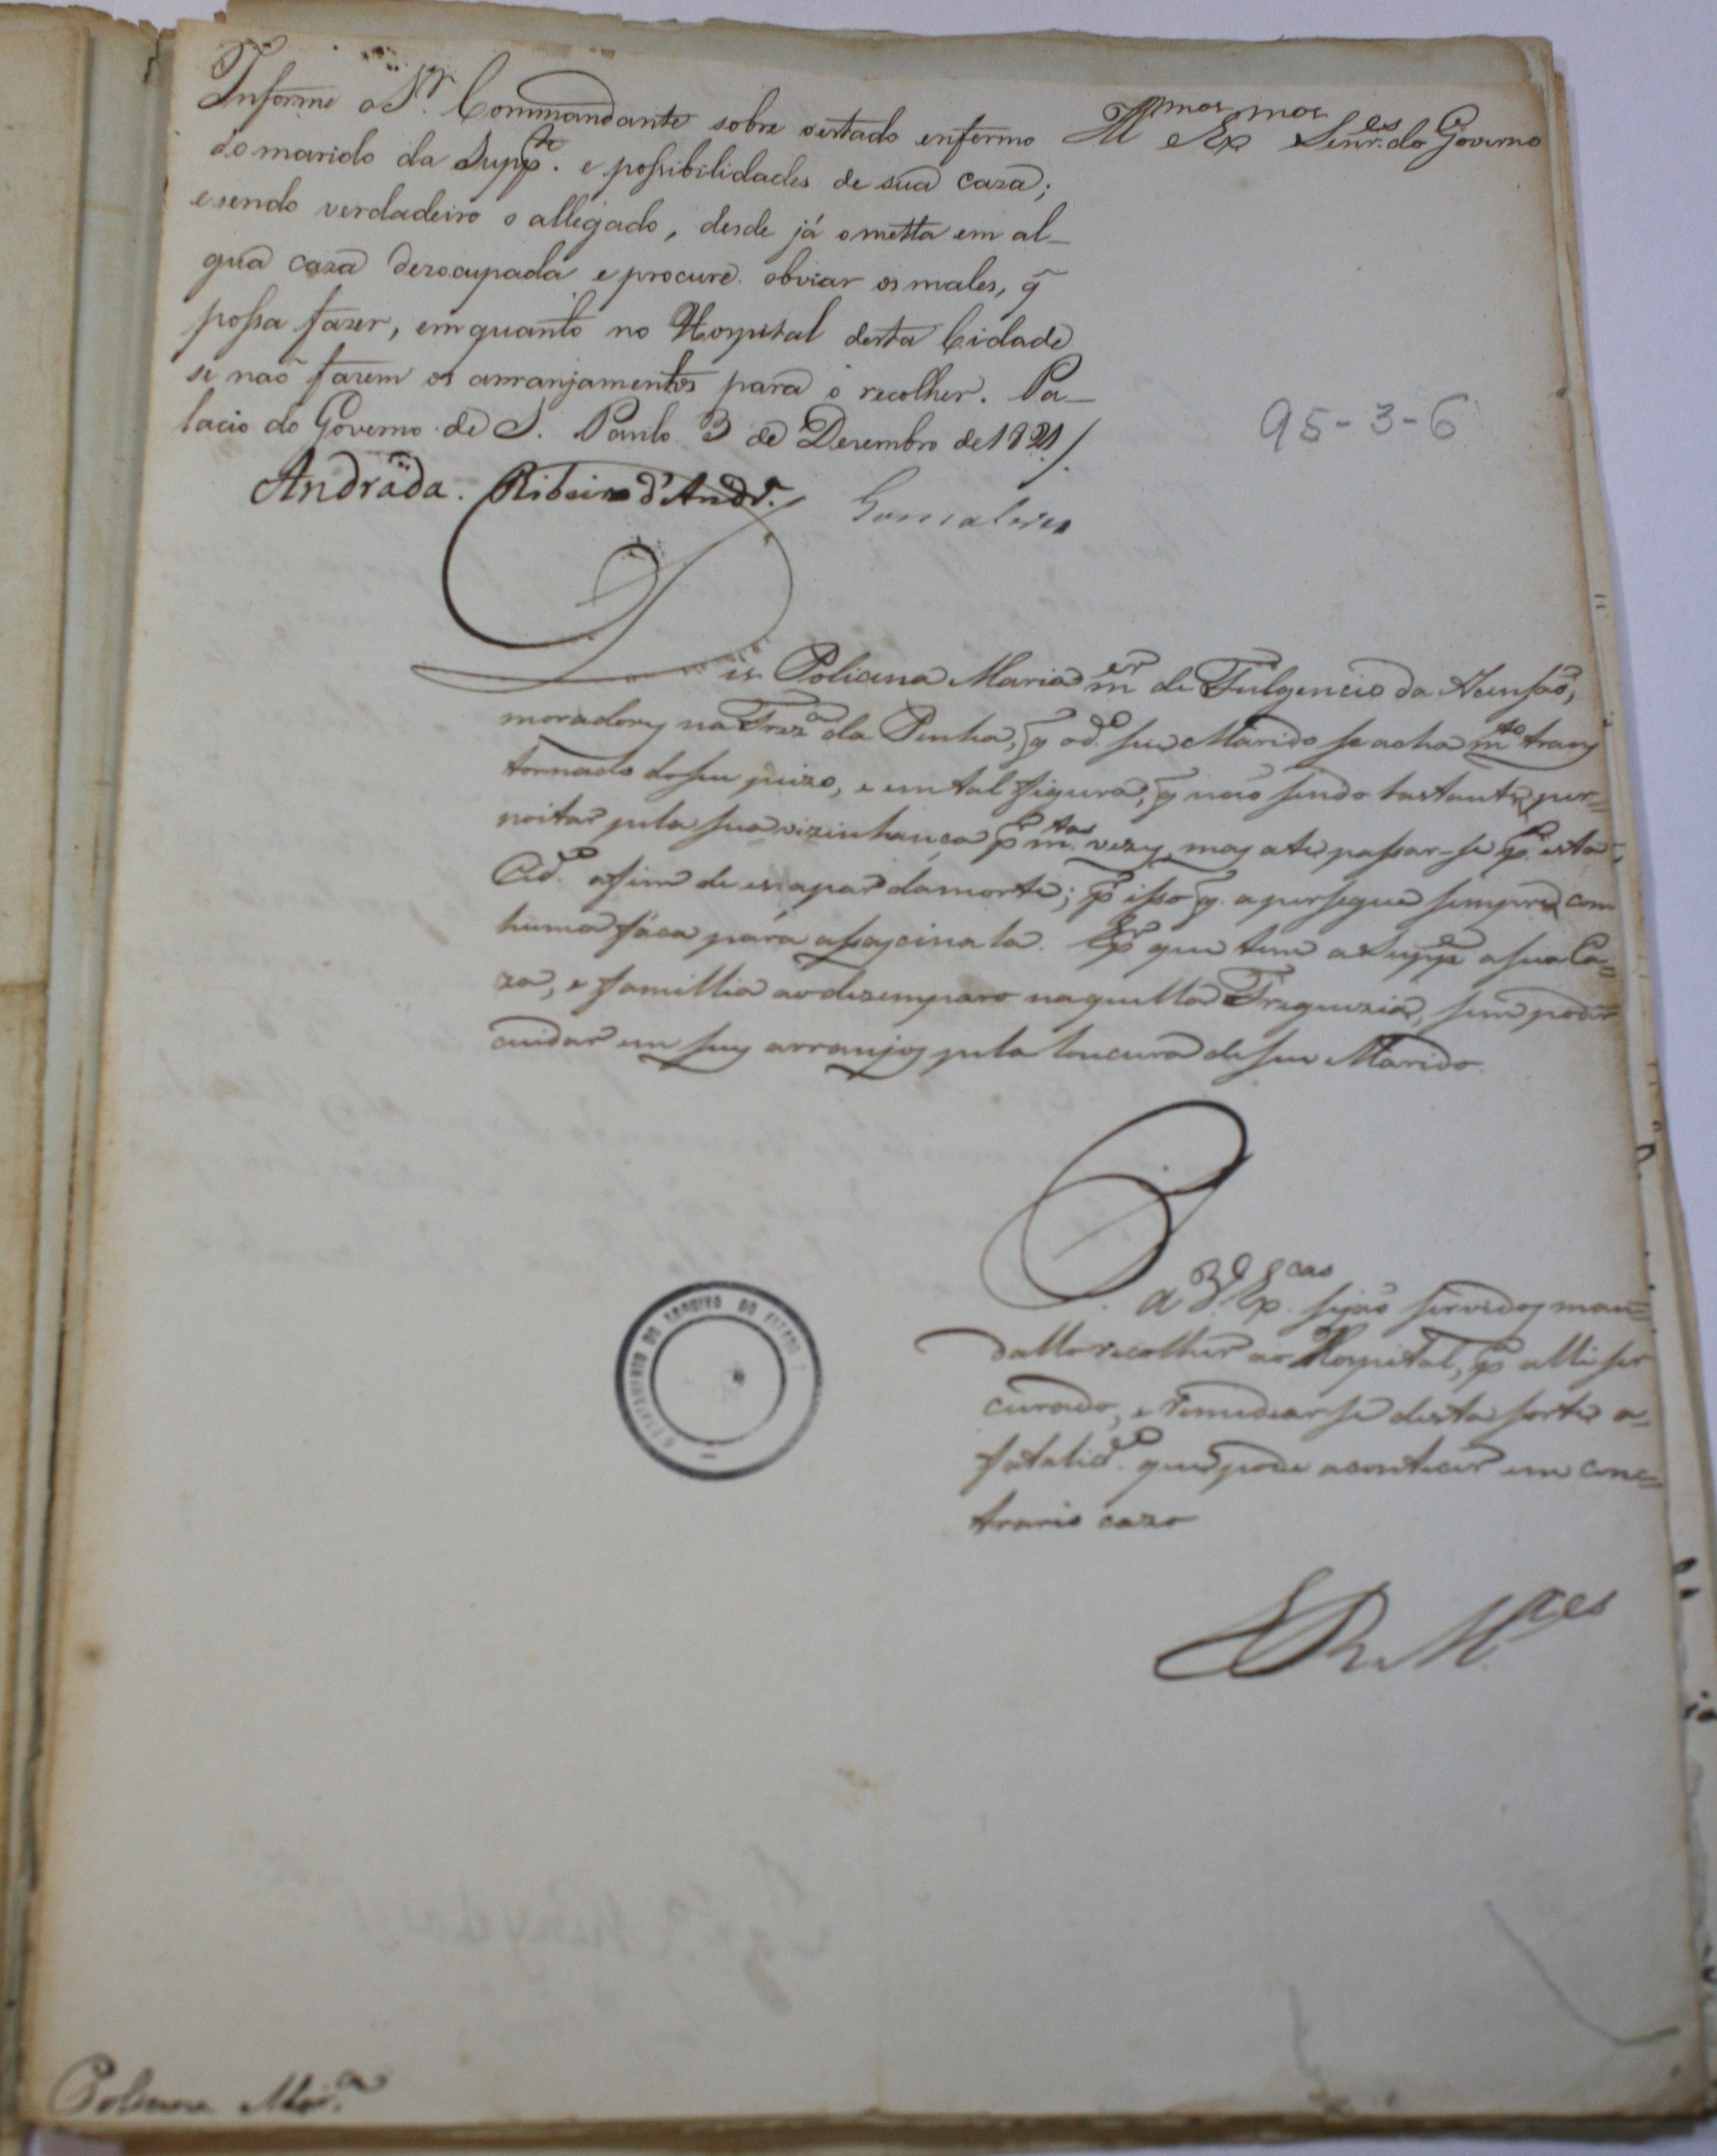 Informe o Sr. Commandante sobre o estado enfermo
do marido da Suppe. e possibilidades de sua caza;
e sendo verdadeiro o allegado, desde já o metta em al-
gũa caza dezocupada e procure obviar os males, q̃
possa fazer, em quanto no Hospital desta Cidade
se naõ fazem os arranjamentos para o recolher. Pa-
lacio do Governo de S. Paulo 3 de Dezembro de 1821/.
Andrada. Ribeiro d'Andr.
Gonsalves
Illmos e Exmos Senr.es do Governo
95-3-6
Dis Policena Maria m.er de Fulgencio da Asensaõ,
moradores na Frez.a da Penha, q̃ o d.o seu Marido se acha m.to trans
tornado do seu juizo, e em tal figura, q̃ não sendo bastante per-
noitar pela sua vizinhança p.r m.tas vezes, mas ate passar-se p.a esta
Cid.e afim de escapar da morte; p.r isso q̃ a persegue sempre com
huma faca para assacinala. P.r que tem a Supp.e a sua Ca-
za, e famillia ao dezemparo naquella Freguezia, sem poder
cuidar em seus arranjos pela loucura de seu Marido.
P. a V.as Ex.cas sejão servidos man-
dallo recolher ao Hospital, p.a alli ser
curado, e remediar-se desta sorte a
fatalid.e que pode acontecer em con-
trario cazo
E R M.ces
DEPARTAMENTO DO ARQUIVO DO ESTADO
Policena Mar.a